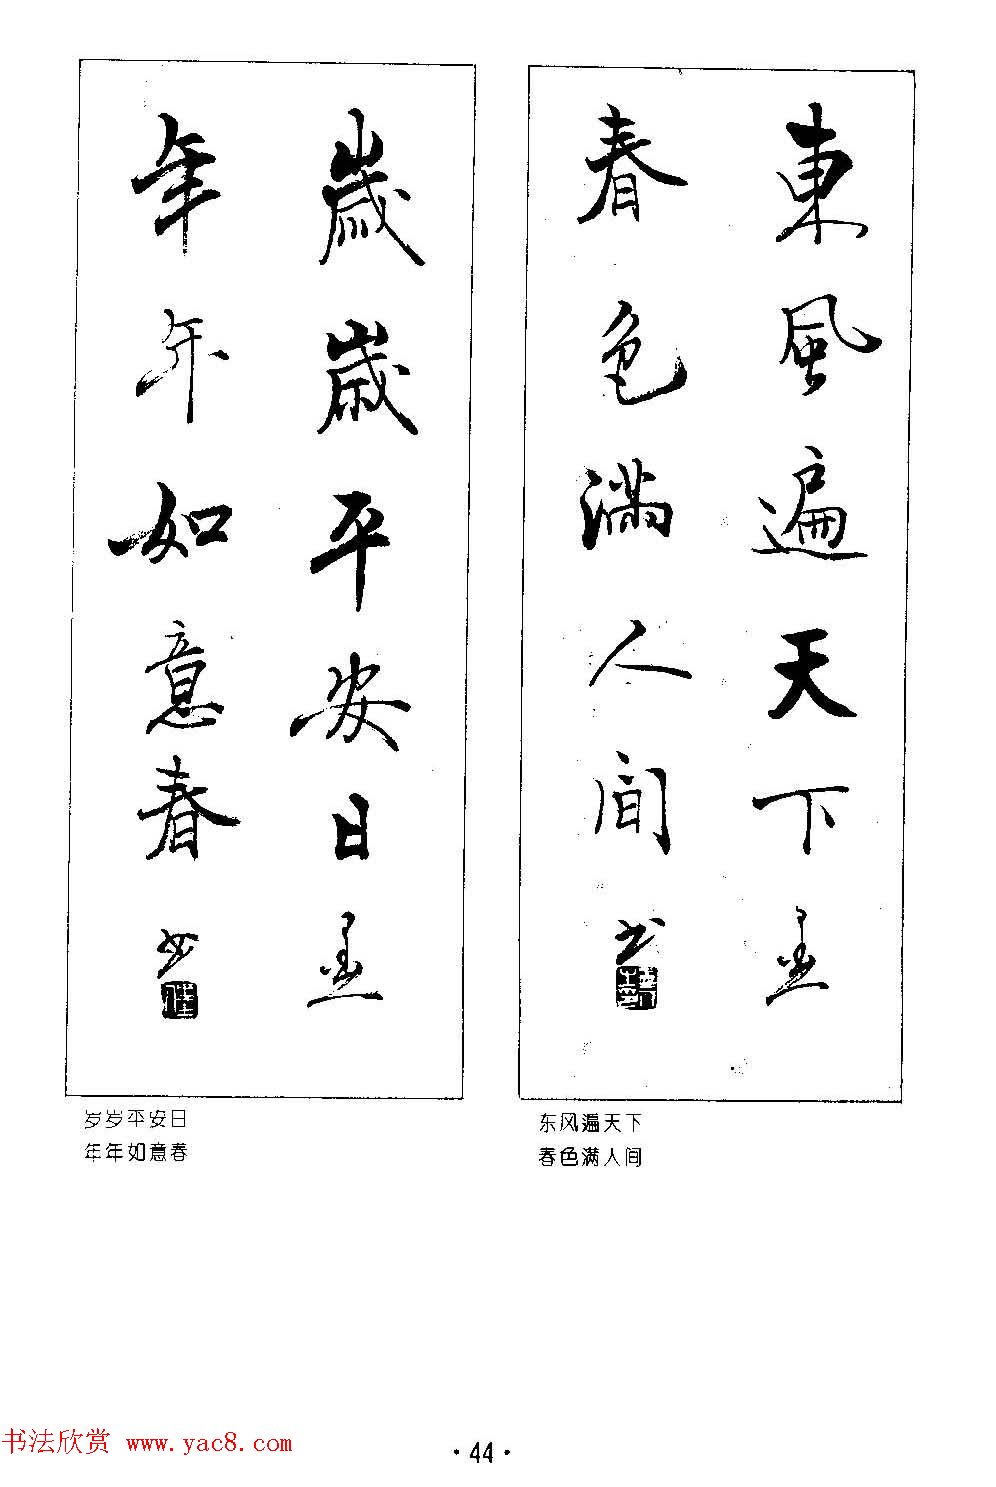 東風遍天下
春色满人间
歲歲平安日
年年如意春
岁岁平安日
年年如意春
东风遍天下
春色满人间
书法欣赏 www.yac8.com
·44·